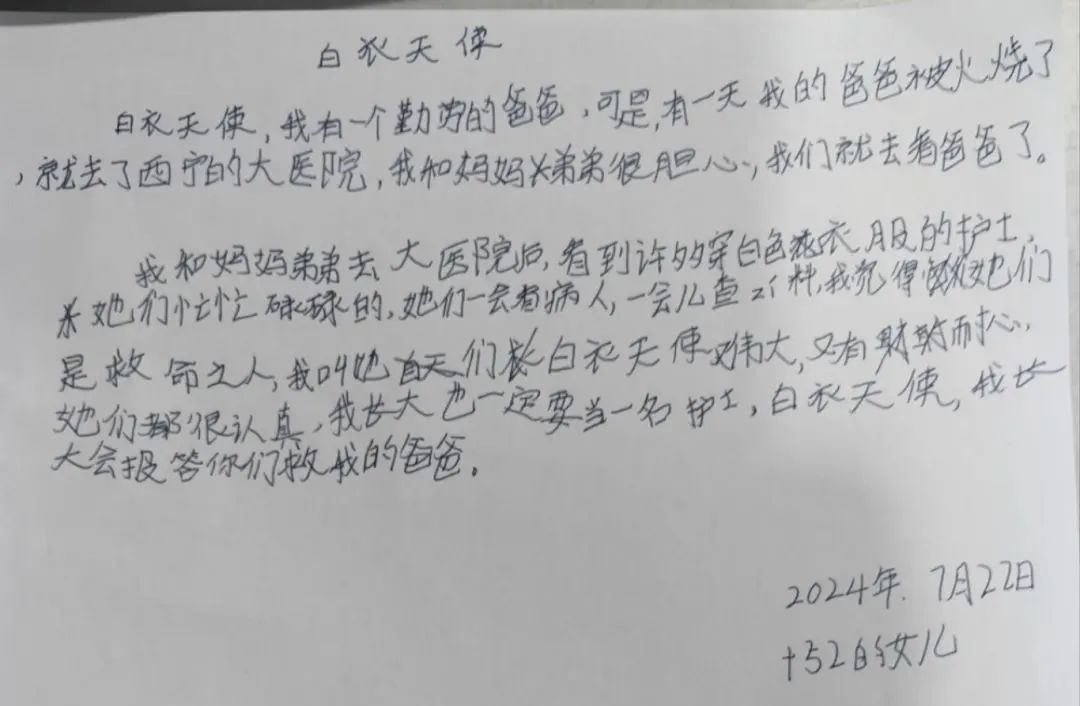 白衣天使
白衣天使,我有一个勤劳的爸爸,可是,有一天我的爸爸被火烧了
,就去了西宁的大医院,我和妈妈弟弟很胆心,我们就去看爸爸了。
我和妈妈弟弟去大医院后,看到许多穿白色衣服的护士,
她们忙忙碌碌的,她们一会看病人,一会儿查料,我觉得她们
是救命之人,我叫她们白衣天使对伟大,又有耐心,
她们都很认真,我长大也一定要当一名护士,白衣天使,我长
大会报答你们救我的爸爸。
2024年.7月22日
+52的女儿